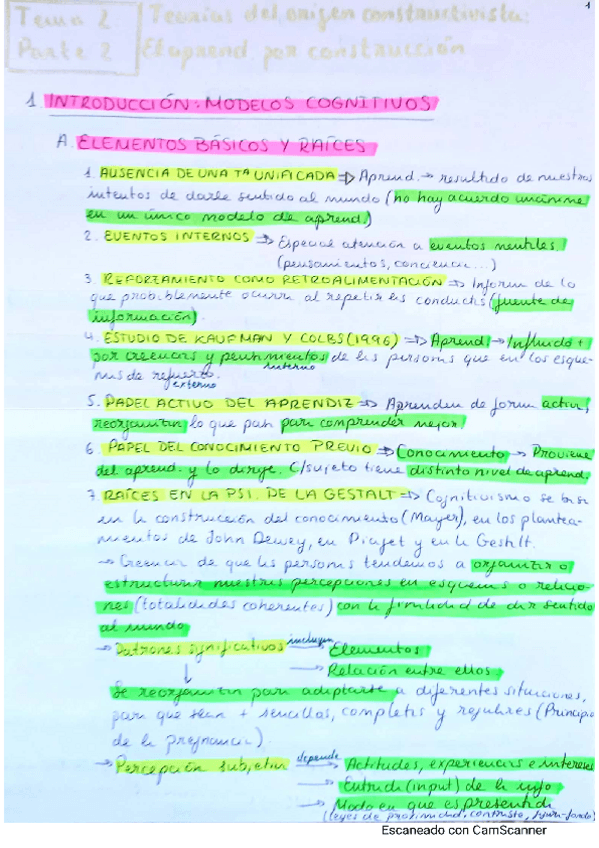 1
Tema 2 Teorías del origen constructivista:
Parte 2 El aprend. por construcción
1. INTRODUCCIÓN: MODELOS COGNITIVOS
A. ELEMENTOS BÁSICOS Y RAÍCES
1. AUSENCIA DE UNA Tª UNIFICADA => Aprend. → resultado de nuestros
intentos de darle sentido al mundo (no hay acuerdo unánime
en un único modelo de aprend.)
2. EVENTOS INTERNOS => Especial atención a eventos mentales.
(pensamientos, conciencia...)
3. REFORZAMIENTO COMO RETROALIMENTACIÓN => Inform. de lo
que probablemente ocurra al repetir las conductas (fuente de
información).
4. ESTUDIO DE KAUFMAN Y COLBS (1996) => Aprend. → Influido +
por creencias y pensamientos de las personas que en los esque-
interno
mas de refuerzo.
externo
5. PAPEL ACTIVO DEL APRENDIZ => Aprenden de forma activa,
reorganizan lo que pasa para comprender mejor.
6. PAPEL DEL CONOCIMIENTO PREVIO => Conocimiento → Proviene
del aprend. y lo dirige. C/sujeto tiene distinto nivel de aprend.
7. RAÍCES EN LA PSI. DE LA GESTALT => Cognitivismo se basa
en la construcción del conocimiento (Mayer), en los plantea-
mientos de John Dewey, en Piaget y en la Gestalt.
→ Creencia de que las personas tendemos a organizar o
estructurar nuestras percepciones en esquemas o relacio-
nes (totalidades coherentes) con la finalidad de dar sentido
al mundo
→ Patrones significativos incluyen → Elementos
→ Relación entre ellos
Se reorganizan para adaptarse a diferentes situaciones,
para que sean + sencillos, completos y regulares (Principio
de la pregnancia).
→ Percepción subjetiva depende → Actitudes, experiencias e intereses
→ Entrada (input) de la info
→ Modo en que es presentada
(leyes de proximidad, contraste, figura-fondo)
Escaneado con CamScanner